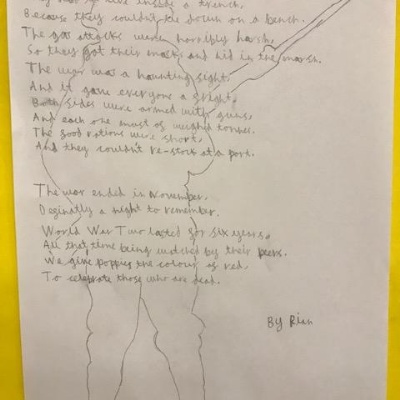 live inside a trench,
Because they couldn't lie down on a bench.
The gas attacks were horribly harsh,
So they got their masks and hid in the marsh.
The war was a haunting sight,
And it gave everyone a fright,
Both sides were armed with guns,
And each one must of weighed tonnes.
The food rations were short,
And they couldn't re-stock at a port.
The war ended in November,
Definatly a night to remember.
World War Two lasted for six years,
All that time being watched by their peers.
We give poppies the colour of red,
To celebrate those who are dead.
By Rian